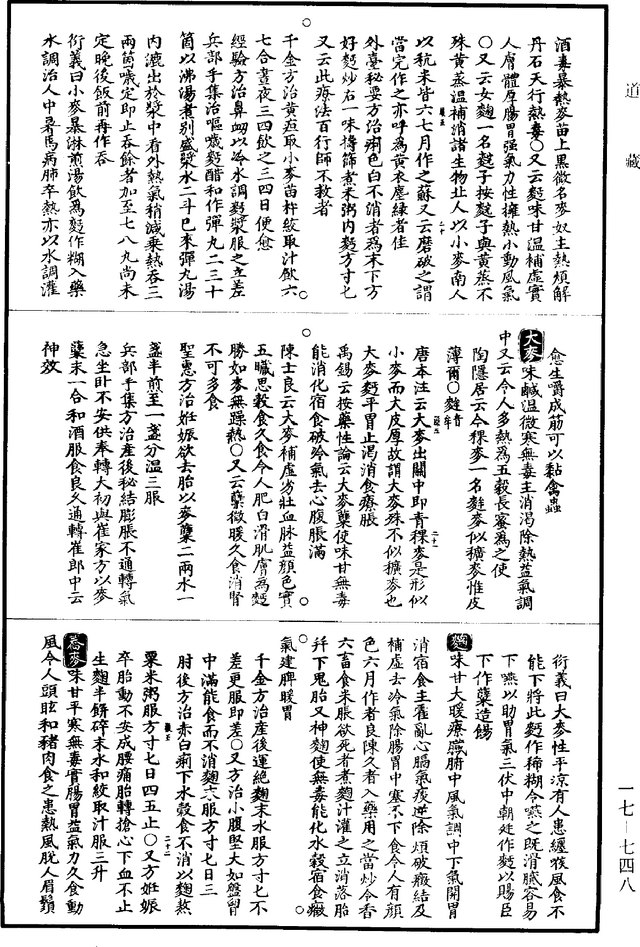 道藏
酒毒暴熱麥苗上黑黴名麥奴主熱煩解
丹石天行熱毒○又云麪味甘溫補虛實
人膚體厚腸胃强氣力性擁熱小動風氣
○又云女麴一名䴷子按䴷子與黄蒸不
殊黄蒸溫補消諸生物北人以小麥南人
以秔米皆六七月作之蘇又云磨破之謂
當完作之亦呼爲黄衣塵綠者佳
外臺秘要方治痢色白不消者爲末下方
好麪炒右一味擣篩煮米粥内麪方寸匕
又云此療法百行師不救者
千金方治黄疸取小麥苗杵絞取汁飲六
七合晝夜三四飲之三四日便愈
經驗方治鼻衂以冷水調麪漿服之立差
兵部手集治嘔噦麪醋和作彈丸二三十
箇以沸湯煮别盛漿水二斗已來彈丸湯
内漉出於漿中看外熱氣稍減乗熱吞三
兩箇噦定即止吞餘者加至七八九尚未
定晚後飯前再作吞
衍義曰小麥暴淋煎湯飲爲麪作糊入藥
水調治人中暑馬病肺卒熱亦以水調灌
愈生嚼成筋可以黏禽蟲
大麥味鹹溫微寒無毒主消渴除熱益氣調
中又云令人多熱爲五穀長蜜爲之使
陶隱居云今稞麥一名䴬麥似穬麥惟皮
薄爾○䴬音牟
唐本注云大麥出關中即青稞麥是形似
小麥而大皮厚故謂大麥殊不似穬麥也
大麥麪平胃止渴消食療脹
禹錫云按藥性論云大麥蘖使味甘無毒
能消化宿食破冷氣去心腹脹滿
陳士良云大麥補虛劣壯血脉益顔色實
五臟思穀食久食令人肥白滑肌膚爲麪
勝如麥無躁熱○又云蘖微暖久食消腎
不可多食
聖惠方治姙娠欲去胎以麥蘖二兩水一
盞半煎至一盞分溫三服
兵部手集方治産後秘結膨脹不通轉氣
急坐卧不安供奉輔大初與崔家方以麥
蘖末一合和酒服食良久通轉崔郎中云
神效
衍義曰大麥性平涼有人患纏喉風食不
能下將此麪作稀糊令嚥之既滑膩容易
下嚥以助胃氣三伏中朝廷作麨以賜臣
下作蘖造餳
麴味甘大暖療臟腑中風氣調中下氣開胃
消宿食主霍亂心膈氣痰逆除煩破癥結及
補虛去冷氣除腸胃中塞不下食令人有顔
色六月作者良陳久者入藥用之當炒令香
六畜食米脹欲死者煮麴汁灌之立消落胎
并下鬼胎又神麴使無毒能化水穀宿食癥
氣建脾暖胃
千金方治産後運絶麴末水服方寸匕不
差更服即差○又方治小腹堅大如盤胷
中滿能食而不消麴末服方寸匕日三
肘後方治赤白痢下水穀食不消以麴熬
粟米粥服方寸匕日四五止○又方姙娠
卒胎動不安成腰痛胎轉搶心下血不止
生麴半餅碎末水和絞取汁服三升
蕎麥味甘平寒無毒實腸胃益氣力久食動
風令人頭眩和豬肉食之患熱風脱人眉鬚
一七—七四八